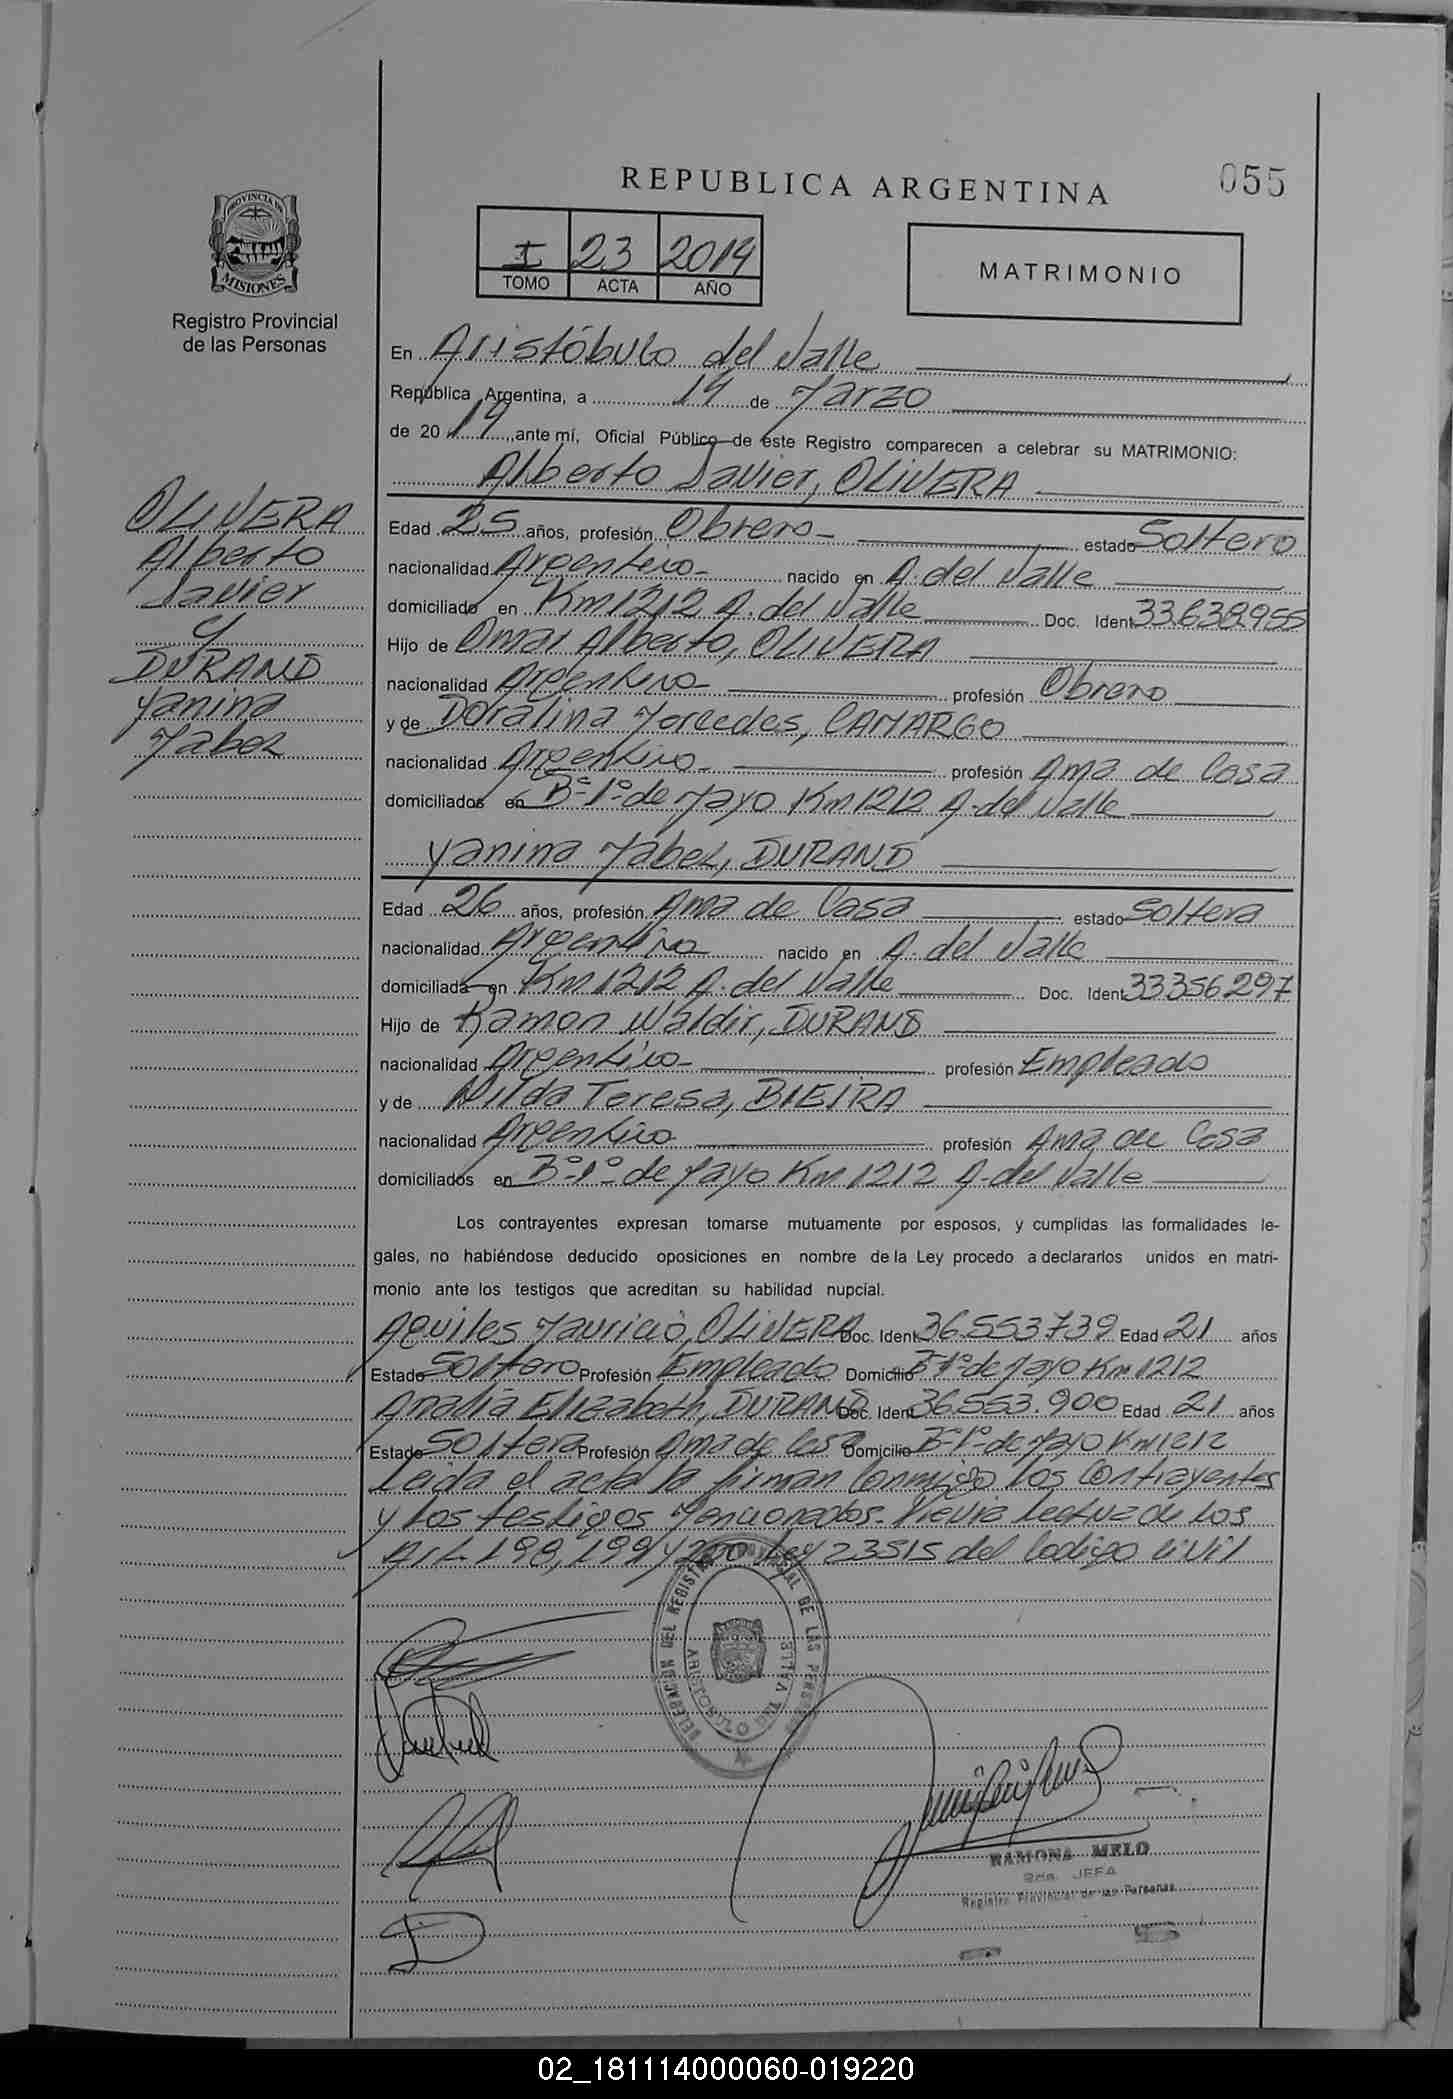 REPUBLICA ARGENTINA
055
PROVINCIA DE
MISIONES
Registro Provincial
de las Personas
I 23 2014
TOMO ACTA AÑO
MATRIMONIO
En Aristóbulo del Valle
República Argentina, a 14 de Marzo
de 20 14, ante mí, Oficial Público de este Registro comparecen a celebrar su MATRIMONIO:
Alberto Javier, OLIVERA
OLIVERA
Alberto
Javier
y
DURAND
Yanina
Mabel
Edad 25 años, profesión Obrero- estado Soltero
nacionalidad Argentino- nacido en A. del Valle
domiciliado en Km 1212 A. del Valle Doc. Ident 33.638.955
Hijo de Omar Alberto, OLIVERA
nacionalidad Argentino- profesión Obrero
y de Doralina Mercedes, CAMARGO
nacionalidad Argentino- profesión Ama de Casa
domiciliados en Bº 1º de Mayo Km 1212 A. del Valle
Yanina Mabel, DURAND
Edad 26 años, profesión Ama de Casa estado Soltera
nacionalidad Argentina nacido en A. del Valle
domiciliada en Km 1212 A. del Valle Doc. Ident 33356297
Hijo de Ramon Waldir, DURAND
nacionalidad Argentino- profesión Empleado
y de Nilda Teresa, BIEIRA
nacionalidad Argentino profesión Ama de Casa
domiciliados en Bº 1º de Mayo Km 1212 A. del Valle
Los contrayentes expresan tomarse mutuamente por esposos, y cumplidas las formalidades le-
gales, no habiéndose deducido oposiciones en nombre de la Ley procedo a declararlos unidos en matri-
monio ante los testigos que acreditan su habilidad nupcial.
Aquiles Mauricio, OLIVERA Doc. Ident 36.553.739 Edad 21 años
Estado Soltero Profesión Empleado Domicilio Bº 1º de Mayo Km 1212
Analia Elizabeth, DURAND Doc. Ident 36.553.900 Edad 21 años
Estado Soltera Profesión Ama de Casa Domicilio Bº 1º de Mayo Km 1212
Leida el acta la firman Conmigo los Contrayentes
y los testigos Mencionados. Previa lectura de los
Art. 198, 199 y 200 Ley 23515 del Codigo Civil
DELEGACION DEL REGISTRO PROVINCIAL DE LAS PERSONAS
ARISTOBULO DEL VALLE
RAMONA MELO
JEFA
Registro Provincial de las Personas
02_181114000060-019220